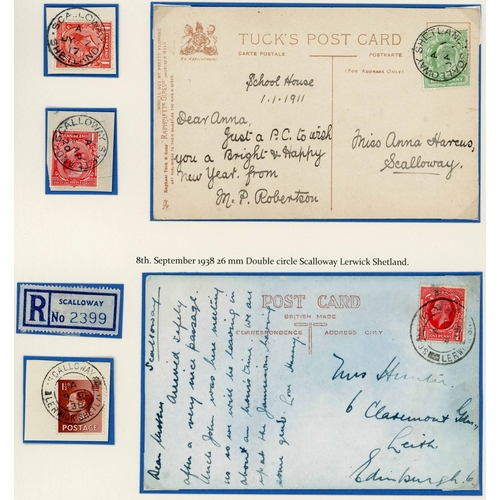 SCALLOWAY
SHETLAND
TUCK'S POST CARD
CARTE POSTALE
POSTKARTE
(FOR ADDRESS ONLY)
SCALLOWAY SHETLAND
School House
1.1.1911
Dear Anna,
Just a P.C. to wish
you a Bright & Happy
New Year. from
M. P. Robertson
Miss Anna Harcus,
Scalloway.
SCALLOWAY
8th. September 1938 26 mm Double circle Scalloway Lerwick Shetland.
R
SCALLOWAY
No 2399
SCALLOWAY
LERWICK
POSTAGE
POST CARD
BRITISH MADE
CORRESPONDENCE
ADDRESS ONLY
LERWICK
Scalloway
Dear Mother
Arrived safely
after a very nice passage.
Uncle John was here meeting
us so we will be leaving in
about an hour's time. We are
up at the having
some grub. Love
Mrs
6 Claremont Gdns,
Leith
Edinburgh 6